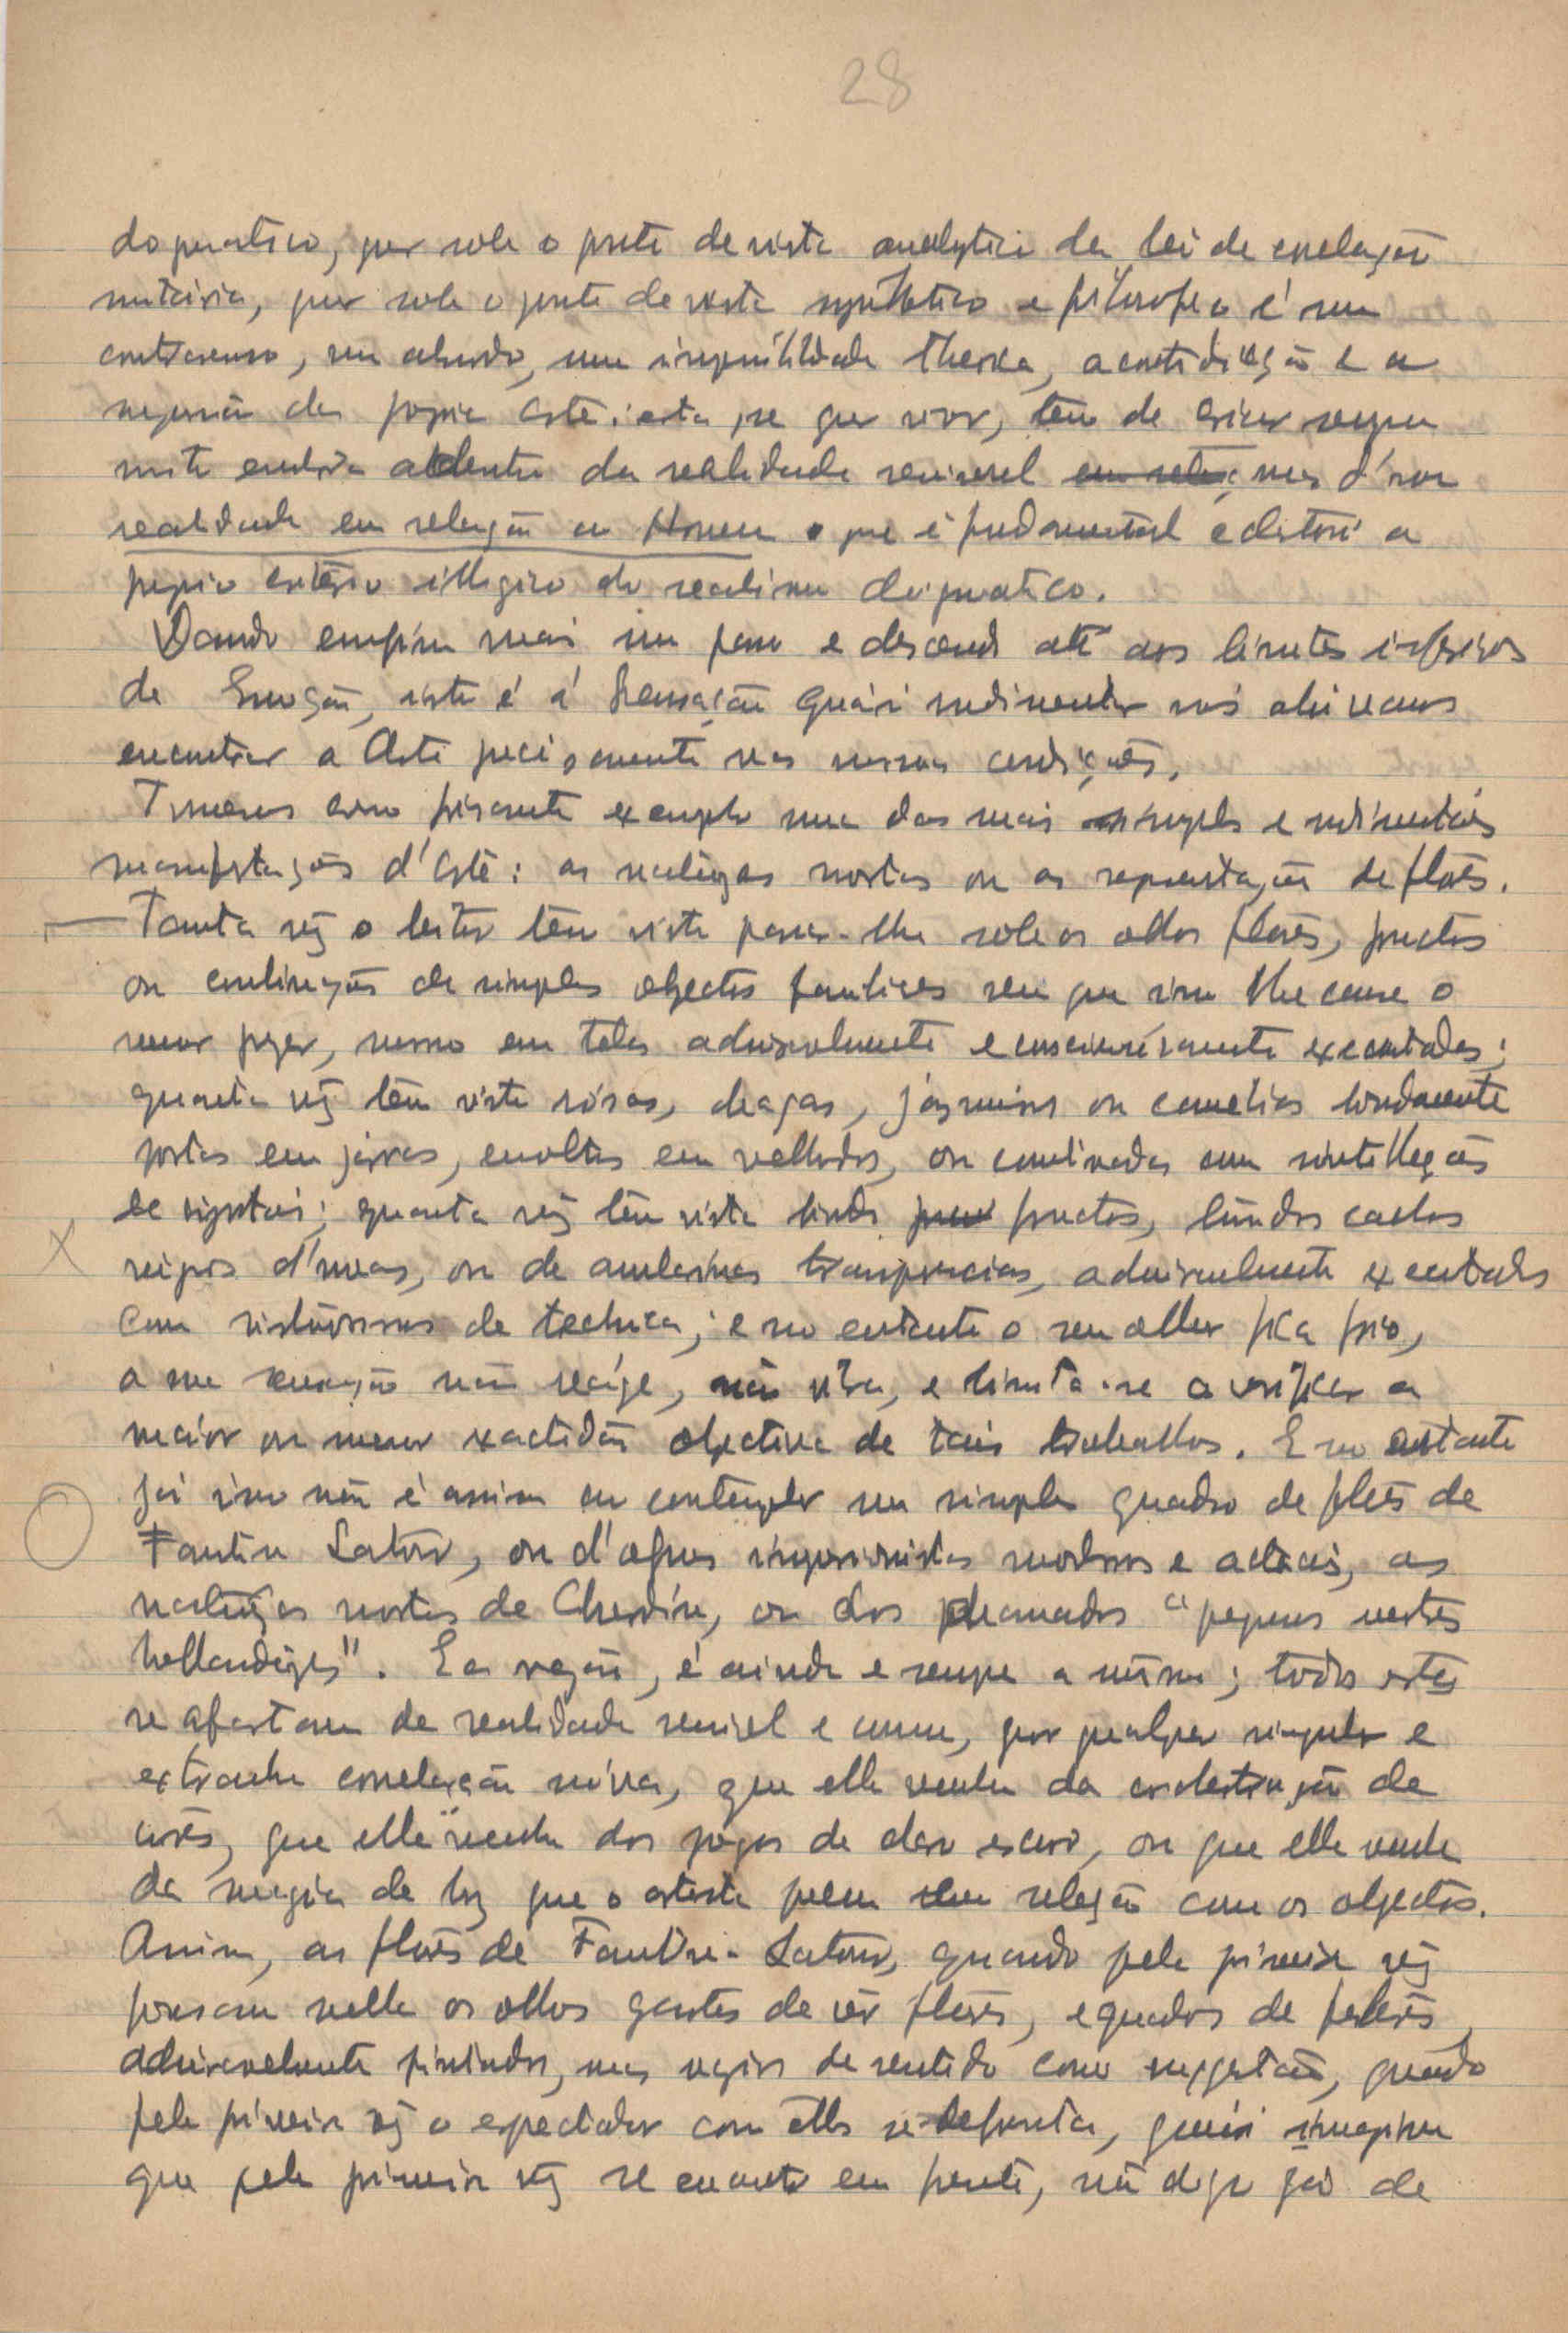 28
dogmatico, quer sob o ponto de vista analytico da lei de correlação
quer sob o ponto de vista synthetico e philosophico é um
contrasenso, um absurdo, uma impossibilidade theorica, a contradição e a
negação da propria Arte: esta, se quer viver, tem de criar
embora dentro da realidade sensivel mas d'uma
realidade em relação ao Homem o que é fundamental e destroi o
proprio criterio illogico do realismo dogmatico.
Dando emfim mais um passo e descendo até aos limites inferiores
da Emoção, isto é á Sensação quasi rudimentar nós ahi vamos
encontrar a Arte precisamente nas mesmas condições.
Tomemos como frisante exemplo uma das mais simples e rudimentares
manifestações d'Arte: as naturezas mortas ou as representações de flores.
Tanta vez o leitor tem visto passar-lhe sob os olhos flores, fructos
ou combinações de simples objectos familiares sem que isso lhe cause o
menor prazer, mesmo em telas admiravelmente e conscienciosamente executadas;
quanta vez tem visto rosas, chagas, jasmins ou camelias lindamente
postas em jarras, envoltas em velludos, ou combinadas com scintillações
de cristais; quanta vez tem visto lindos fructos, lindos cachos
negros d'uvas, ou de amberinas transparencias, admiravelmente executados
com virtuosismos de technica; e no entanto o seu olhar fica frio,
a sua sensação não reage, não vibra, e limita-se a verificar a
maior ou menor exactidão objectiva de tais trabalhos. E no entanto
já isso não é assim ao contemplar um simples quadro de flores de
Fantin Latour, ou d'alguns impressionistas modernos e actuais, as
naturezas mortas de Chardin, ou dos chamados "pequenos mestres
hollandezes". E a razão, é ainda e sempre a mesma; todos estes
se afastam da realidade sensivel e comum, por qualquer singular e
extranha correlação nova, que ella venha da orchestração de
côres, que ella venha dos jogos de claro escuro, ou que ella venha
da magia da luz que o artista poem em relação com os objectos.
Assim, as flores de Fantin-Latour, quando pela primeira vez
pousam nellas os olhos gastos de vêr flores, e quadros de flores
admiravelmente pintados, mas vazios de sentido como suggestão, quando
pela primeira vez o espectador com ellas se defronta, quasi imagina
que pela primeira vez se encontra em frente, não digo já de